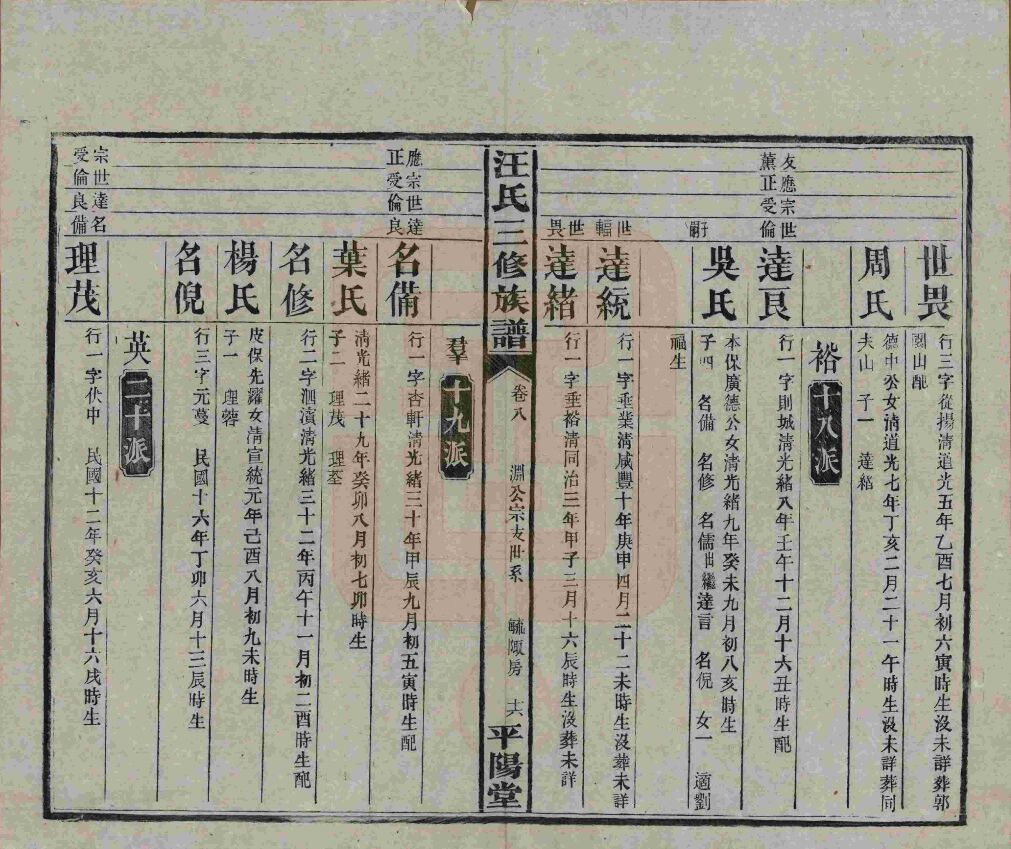 世畏
行三字從揚清道光五年乙酉七月初六寅時生沒未詳葬郭
關山配
周氏
德中公女清道光七年丁亥二月二十一午時生沒未詳葬同
夫山 子一 達緒
裕 十八派
友應宗世
薰正受倫
達良
行一字則城清光緒八年壬午十二月十六丑時生配
吳氏
本保廣德公女清光緒九年癸未九月初八亥時生
子四 名備 名修 名儒出繼達言 名倪 女一 適劉
福生
世輻子嗣
達統
行一字垂業清咸豐十年庚申四月二十二未時生沒葬未詳
世畏
達緒
行一字垂裕清同治三年甲子三月十六辰時生沒葬未詳
汪氏三修族譜 卷八 淵公宗支世系 毓陬房 十六 平陽堂
羣 十九派
應宗世達
正受倫良
名備
行一字杏軒清光緒三十年甲辰九月初五寅時生配
葉氏
清光緒二十九年癸卯八月初七卯時生
子二 理茂 理荃
名修
行二字泗濱清光緒三十二年丙午十一月初二酉時生配
楊氏
皮保先躍女清宣統元年己酉八月初九未時生
子一 理蓉
名倪
行三字元蔓 民國十六年丁卯六月十三辰時生
英 二十派
宗世達名
受倫良備
理茂
行一字伏中 民國十二年癸亥六月十六戌時生